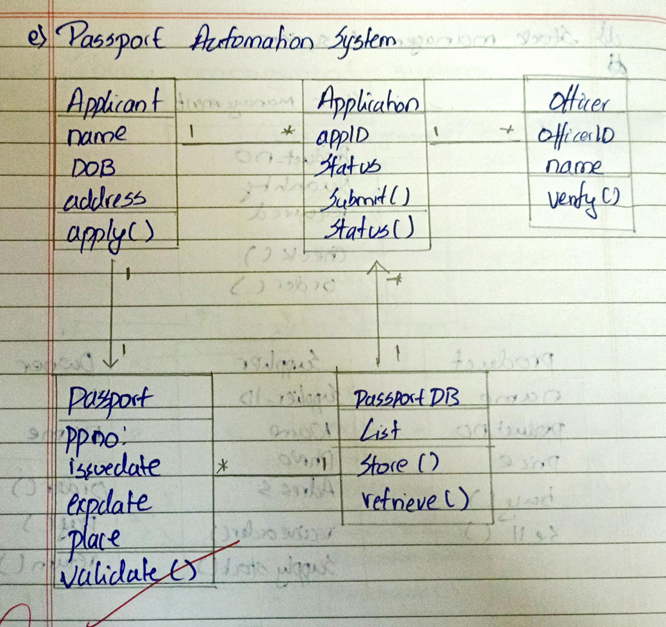 e) Passport Automation System
Applicant
name
DOB
address
apply()
1 *
Application
appID
Status
Submit()
Status()
1 *
Officer
OfficerID
name
verify()
1
1
*
1
Passport
PPno:
issuedate
expdate
place
validate()
* 1
Passport DB
List
Store()
retrieve()